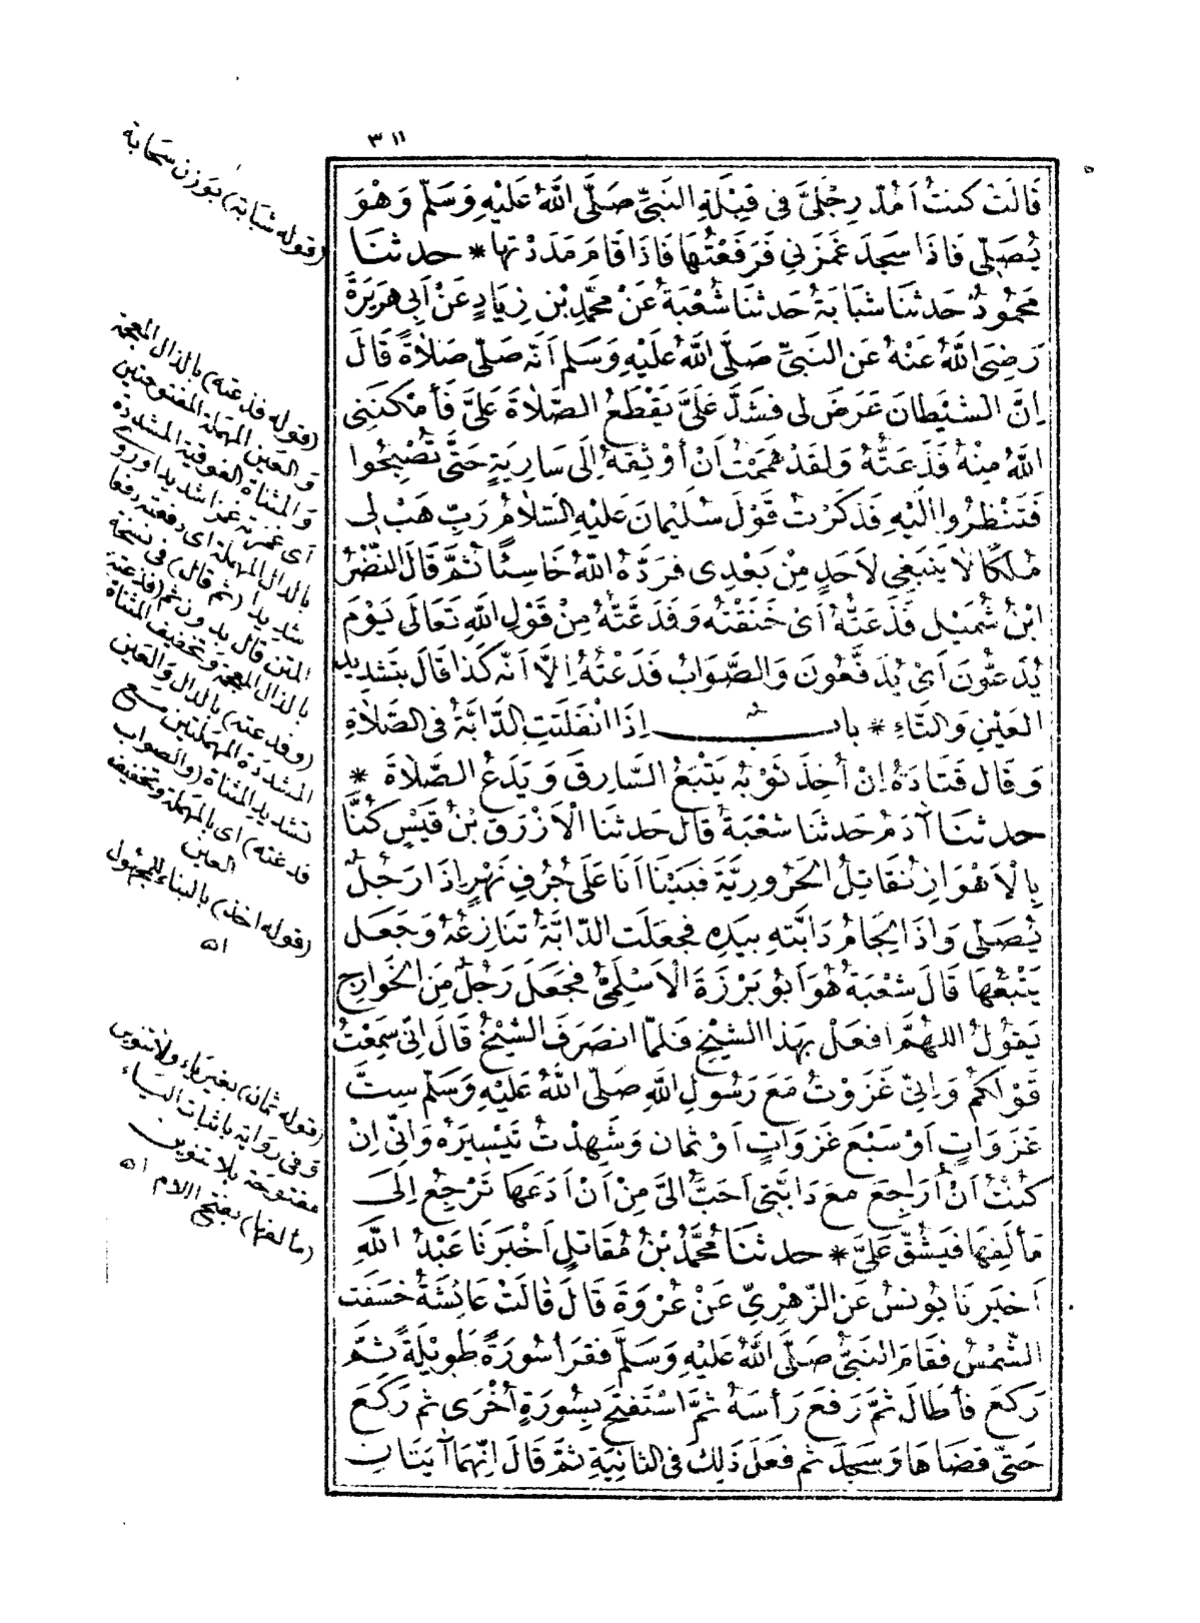 ٣١١
قَالَتْ كنتُ اَمُدّ رِجْلَيَّ فى قِبْلَةِ النَبِىِّ صَلَّى اللهُ عَلَيْهِ وَسَلّم وَهْوَ
يُصَلِّى فَاذَا سَجَدَ غَمَزَنِى فَرَفَعْتُهَا فَاذَا قَامَ مَدَدْتها * حدثنَا
مَحمُودٌ حَدثنَا شَبَابَةُ حَدثنَا شُعْبَةُ عَنْ محَّمدِ بْنِ زِيَادٍ عَنْ اَبِى هرَيرَةَ
رَضِىَ اللهُ عَنْهُ عَنِ النَبِىِّ صَلَّى اللهُ عَلَيْهِ وَسَلم اَنّه صَلّى صَلاَةً قَالَ
اِنَّ الشيْطانَ عَرَضَ لى فشَدَّ عَلَىَّ يَقْطَعُ الصّلاَةَ عَلَىَّ فَأمْكنَنِى
اللهُ مِنْهُ فَذَعَتُّهُ وَلَقدْ هَمَمْتُ اَنْ أُوثِقَهُ اِلَى سَارِيَةٍ حَتَّى تُصْبِحُوا
فَتَنْظرُوا اِلَيْهِ فَذكَرْتُ قَوْلَ سُلَيْمَانَ عَلَيْهِ السّلاَمُ رَبِّ هَبْ لِى
مُلكًا لاَ يَنبَغِى لاَحَدٍ مِنْ بَعْدِى فرَدَّهُ اللهُ خَاسِئًا ثُمَّ قَالَ النّضْرُ
ابْنُ شُمَيْلٍ فَذَعَتُّهُ اَىْ خَنَقْتُه وَفَدَعَّتُّهُ مِنْ قَوْلِ اللهِ تَعَالَى يَوْمَ
يُدَعُّونَ اَىْ يُدْفَعُونَ وَالصَّوَابُ فَدَعْتُهُ اِلاَّ اَنّه كَذا قَالَ بتَشدِيد
العَيْنِ وَالتَاءِ * باب اِذَا انْفَلَتَتِ الدَّابَّةُ فى الصَّلاَةِ
وَقَال قَتَادَةُ اِنْ أُخِذَ ثَوْبُه يَتْبَعُ السَّارِقَ وَيَدَعُ الصَّلاَةَ *
حدثنَا آدَمُ حَدثنَا شعْبَةُ قَالَ حَدثنَا الْاَزْرَقُ بْنُ قَيْسٍ كُنَّا
بِالْاَهْوَازِ نُقَاتِلُ الحَرُورِيَّةَ فَبَيْنَا اَنَا عَلَى جُرُفِ نَهْرٍ اِذَا رَجُلٌ
يُصَلِّى وَاذَا لِجَامُ دَابَّتهِ بيَدِهِ فجعَلَت الدّابَّةُ تنَازِعُهُ وَجَعَل
يَتْبَعُهَا قَالَ شعْبَةُ هُوَ اَبُو بَرْزَةَ الْاَسْلَمِىُّ فجَعَلَ رَجُلٌ مِنَ الخَوَارِجِ
يَقُولُ اللهُمَّ افعَلْ بهَذا الشيْخِ فَلمّا انصَرَفَ الشيْخُ قَالَ اِنِّى سَمِعْتُ
قَوْلَكُمْ وَاِنِّى غَزَوْتُ مَعَ رَسُولِ اللهِ صَلّى اللهُ عَلَيْهِ وَسَلّم سِتَّ
غَزَوَاتٍ اَوْ سَبْعَ غَزَوَاتٍ اَوْ ثمَان وَشهِدْتُ تَيْسِيرَهُ وَاِنِّى اِنْ
كنْتُ اَنْ أُرَاجِعَ مَعَ دَابَّتِى اَحَبُّ اِلَىَّ مِنْ اَنْ اَدَعَهَا تَرْجِعُ اِلىَ
مَألَفِهَا فَيَشُقّ عَلَىَّ * حدثنَا مُحَمَّدُ بْنُ مُقَاتلٍ اَخْبَرَنَا عَبْدُ اللهِ
اَخبَرنَا يُونسُ عَنِ الزّهْرِىِّ عَنْ عُرْوَةَ قَالَ قَالَتْ عَائشَةُ خسَفَت
الشّمْسُ فَقَامَ النبَىُّ صَلَّى اللهُ عَلَيْهِ وَسَلَّم فقرَأ سُورَةً طَوِيْلةً ثمَّ
رَكعَ فأطَالَ ثمَّ رَفَعَ رَأسَهُ ثمَّ اسْتَفتَحَ بسُورَةٍ أُخْرَى ثم رَكَعَ
حَتّى قضَاهَا وَسَجدَ ثم فعَلَ ذَلِكَ فى الثانِيَةِ ثمَّ قَالَ اِنّهمَا آيَتَانِ
(قوله شبَابة) بوَزن سَحَابة
(قوله فذعته) بالذال المعجمة
وَالعَين المهملة المفتوحتين
وَالمثناة الفوقية المشددة
اَى غمزته غمزا شديدا وروى
بالدال المهملة اى دفعته دفعا
شديدا (ثم قال) فى نسخة
المتن قال بدون ثم (فذعته)
بالذال المعجمة وتخفيف المثناة
(وفدعته) بالدال وَالعَين
المشددة المهملتين مع
تشديد المثناة (والصواب
فدعته) اى بالمهملة وتخفيف
العين
(قوله اخذ) بالبناء للمجهول
اه
(قوله ثمان) بغير يَاء ولا تنوين
وَفى رواية باثبات اليَاء
مفتوحَة بلا تنوين
(مألفها) بفتح اللام اه